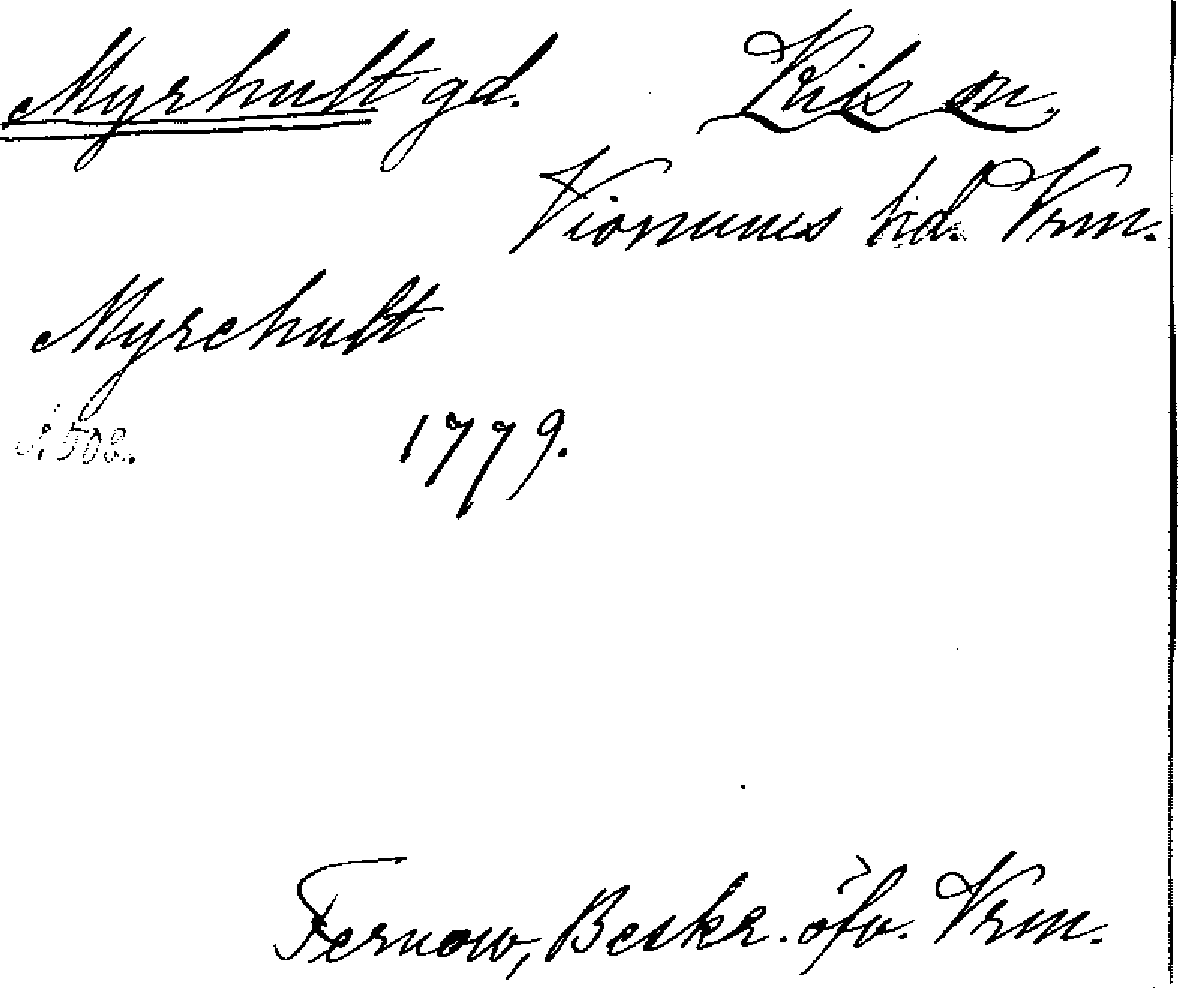 Myrhult gd. Kils sn.
Visnums hd. Vrm.
Myrehult
s. 508. 1779.
Fernow, Beskr. öfv. Vrm.